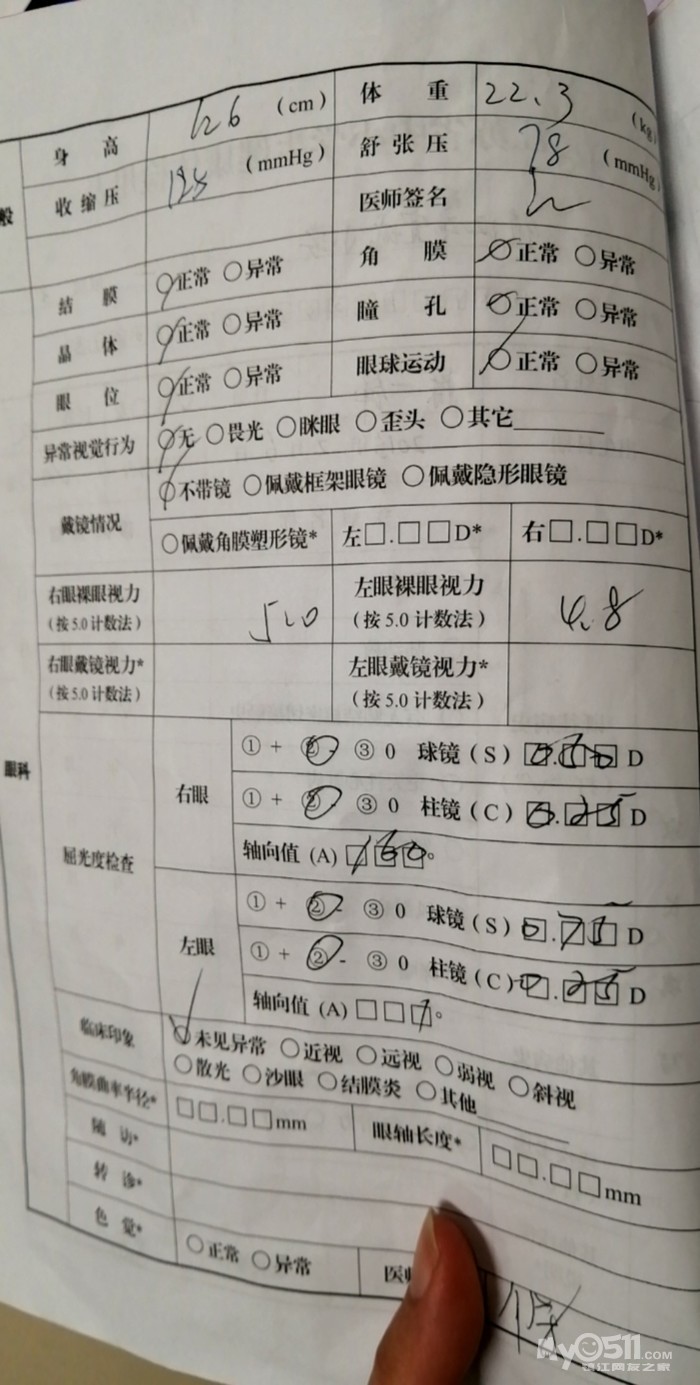 身 高 126 (cm) 体 重 22.3 (kg)
般 收缩压 (mmHg) 舒张压 78 (mmHg)
医师签名
结 膜 ○正常 ○异常 角 膜 ○正常 ○异常
晶 体 ○正常 ○异常 瞳 孔 ○正常 ○异常
眼 位 ○正常 ○异常 眼球运动 ○正常 ○异常
异常视觉行为 ○无 ○畏光 ○眯眼 ○歪头 ○其它
戴镜情况 ○不带镜 ○佩戴框架眼镜 ○佩戴隐形眼镜
○佩戴角膜塑形镜* 左□.□□D* 右□.□□D*
右眼裸眼视力 5.0 左眼裸眼视力 4.8
(按5.0计数法) (按5.0计数法)
右眼戴镜视力* 左眼戴镜视力*
(按5.0计数法) (按5.0计数法)
眼科
屈光度检查
右眼
①+ ②- ③0 球镜(S) D
①+ ②- ③0 柱镜(C) 0.25 D
轴向值(A) °
左眼
①+ ②- ③0 球镜(S) 0.75 D
①+ ②- ③0 柱镜(C) 0.25 D
轴向值(A) □□7°
临床印象 ○未见异常 ○近视 ○远视 ○弱视 ○斜视
○散光 ○沙眼 ○结膜炎 ○其他
角膜曲率半径* □□.□□mm 眼轴长度* □□.□□mm
随 访*
转 诊*
色 觉* ○正常 ○异常 医师
My0511.com
镇江网友之家